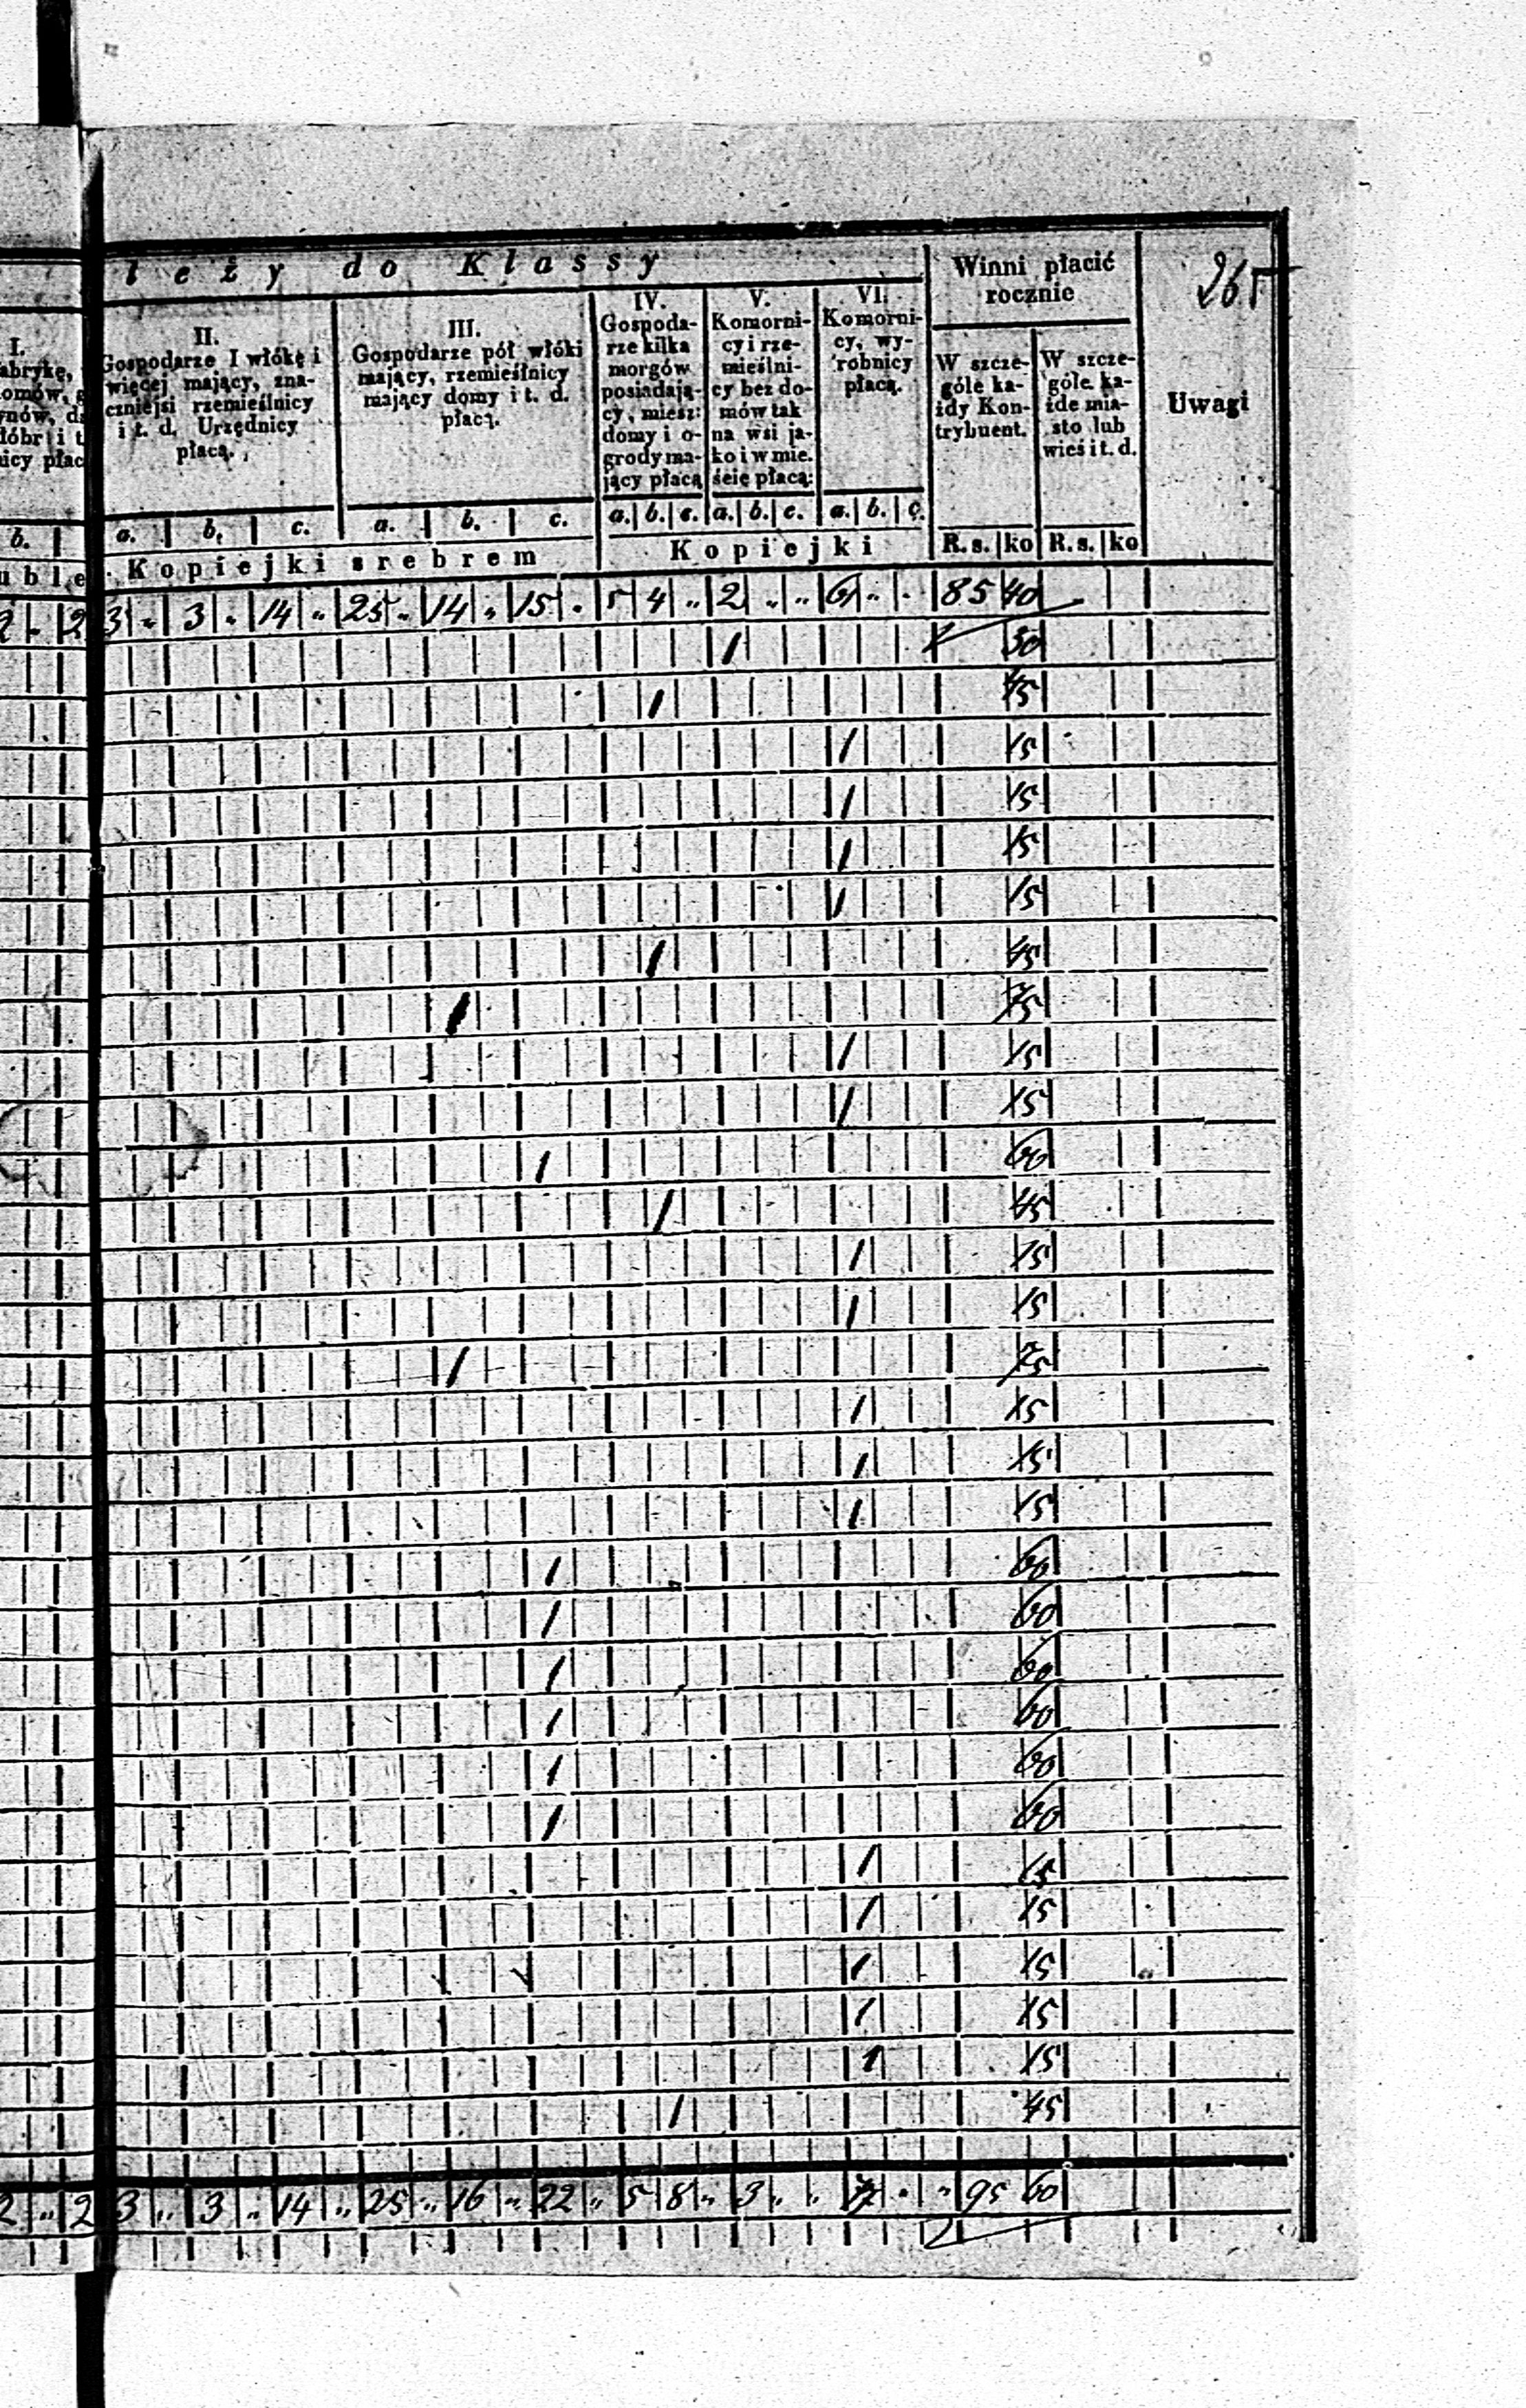 265
leży do Klassy
Winni płacić
rocznie
Uwagi
I.
abrykę,
omów,
ynów, d
dóbr i t
nicy płac
II.
Gospodarze I włókę i
więcej mający, zna-
czniejsi rzemieślnicy
i t. d. Urzędnicy
płacą.
III.
Gospodarze pół włóki
mający, rzemieślnicy
mający domy i t. d.
płacą.
IV.
Gospoda-
rze kilka
morgów
posiadają-
cy, miesz:
domy i o-
grody ma-
jący płacą
V.
Komorni-
cy i rze-
mieślni-
cy bez do-
mów tak
na wsi ja-
ko i w mie.
ście płacą:
VI.
Komorni-
cy, wy-
robnicy
płacą.
W szcze-
góle ka-
żdy Kon-
trybuent.
W szcze-
góle ka-
żde mia-
sto lub
wieś i t. d.
b. a. b. c. a. b. c. a. b. c. a. b. c. a. b. c.
uble Kopiejki srebrem Kopiejki R. s. ko R. s. ko
2 „ 2 3 „ 3 „ 14 „ 25 „ 14 „ 15 „ 5 4 „ 2 „ „ 6 „ „ 85 40
1 30
1 45
1 15
1 15
1 15
1 15
1 45
1 75
1 15
1 15
1 60
1 45
1 15
1 15
1 75
1 15
1 15
1 15
1 60
1 60
1 60
1 60
1 60
1 60
1 15
1 15
1 15
1 15
1 15
1 45
2 „ 2 3 „ 3 „ 14 „ 25 „ 16 „ 22 „ 5 8 „ 3 „ „ „ „ 95 60